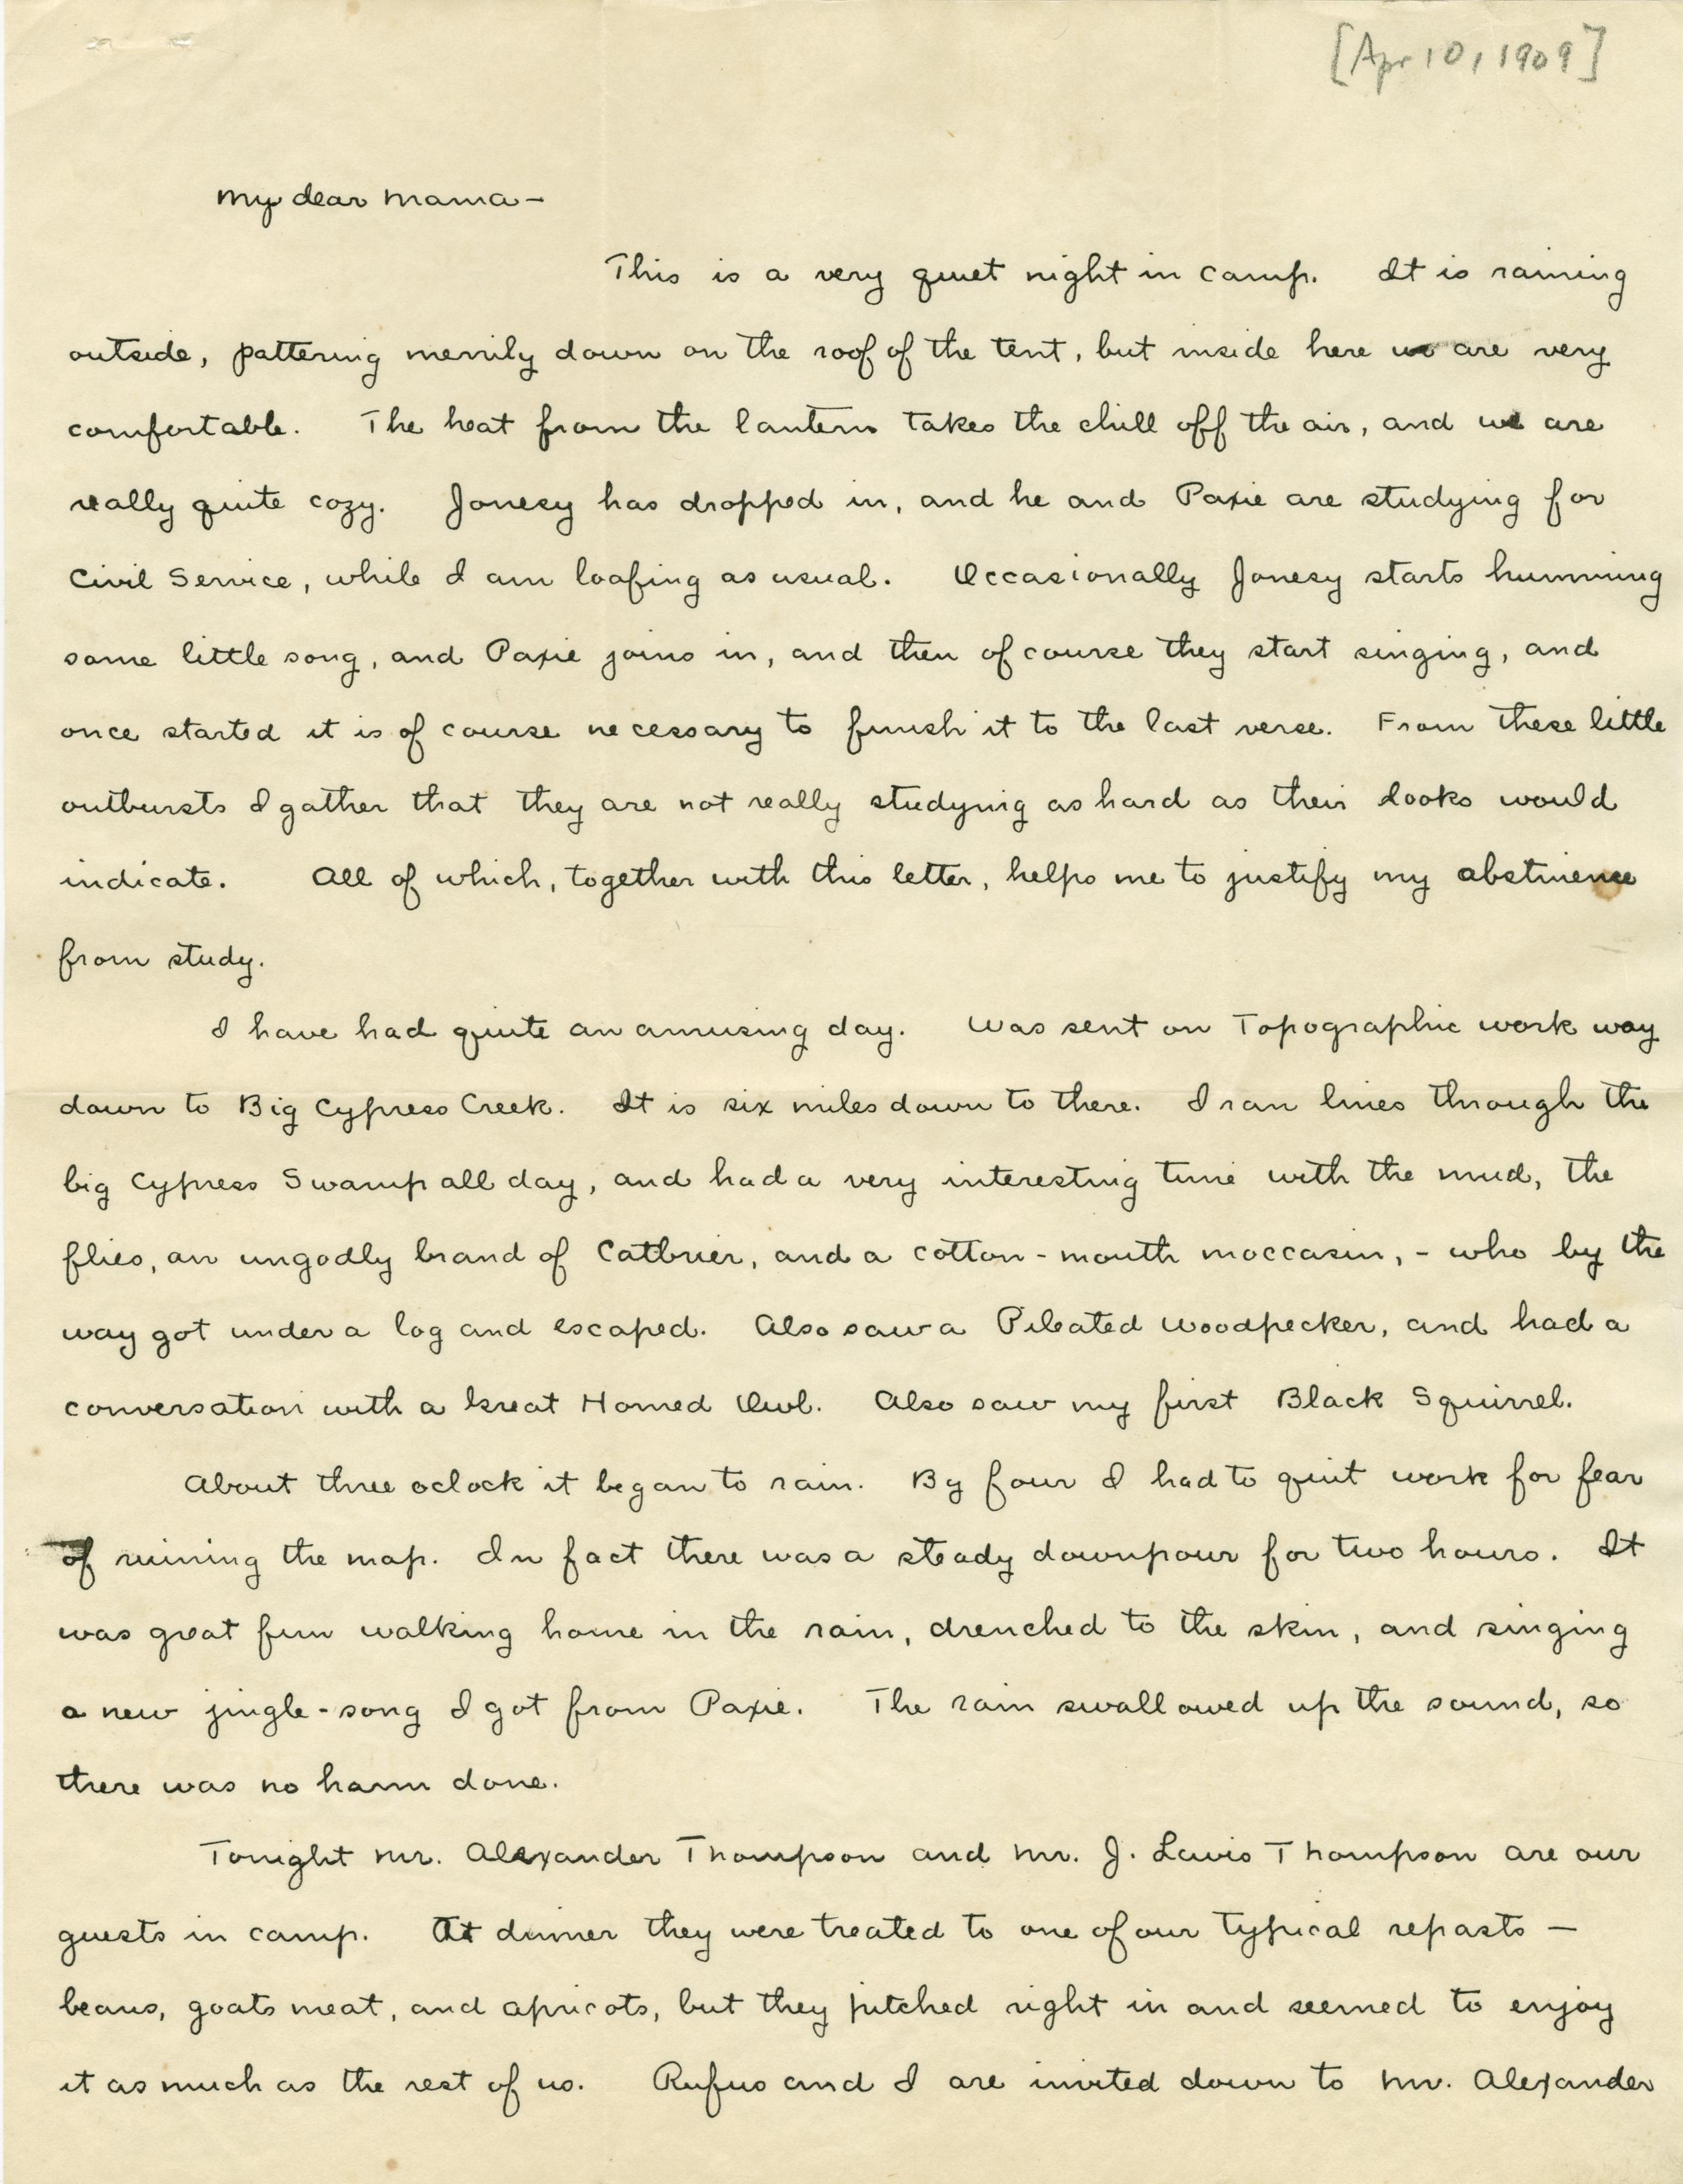 [Apr 10, 1909]
My dear Mama-
This is a very quiet night in camp. It is raining
outside, pattering merrily down on the roof of the tent, but inside here we are very
comfortable. The heat from the lantern takes the chill off the air, and we are
really quite cozy. Jonesy has dropped in, and he and Paxie are studying for
Civil Service, while I am loafing as usual. Occasionally Jonesy starts humming
some little song, and Paxie joins in, and then of course they start singing, and
once started it is of course necessary to finish it to the last verse. From these little
outbursts I gather that they are not really studying as hard as their looks would
indicate. All of which, together with this letter, helps me to justify my abstinence
from study.
I have had quite an amusing day. Was sent on Topographic work way
down to Big Cypress Creek. It is six miles down to there. I ran lines through the
big Cypress Swamp all day, and had a very interesting time with the mud, the
flies, an ungodly brand of Catbrier, and a cotton-mouth moccasin, - who by the
way got under a log and escaped. Also saw a Pileated Woodpecker, and had a
conversation with a Great Horned Owl. Also saw my first Black Squirrel.
About three oclock it began to rain. By four I had to quit work for fear
of ruining the map. In fact there was a steady downpour for two hours. It
was great fun walking home in the rain, drenched to the skin, and singing
a new jingle-song I got from Paxie. The rain swallowed up the sound, so
there was no harm done.
Tonight Mr. Alexander Thompson and Mr. J. Lewis Thompson are our
guests in camp. At dinner they were treated to one of our typical repasts —
beans, goats meat, and apricots, but they pitched right in and seemed to enjoy
it as much as the rest of us. Rufus and I are invited down to Mr. Alexander